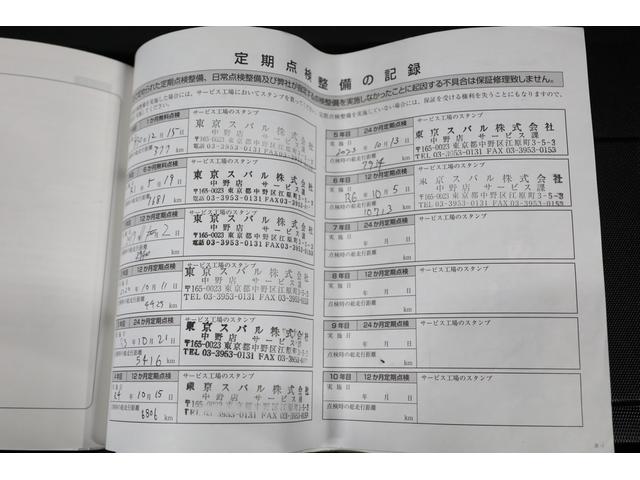 定期点検整備の記録
られた定期点検整備、日常点検整備及び弊社が指定する点検整備を実施しなかったことに起因する不具合は保証修理致しません。
か月無料点検
サービス工場のスタンプ
12月15日
東京スバル株式会社
中野店 サービス課
〒165-0023 東京都中野区江原町3-5-3
TEL03-3953-0131 FAX03-3953-0153
6か月無料点検
サービス工場のスタンプ
5月19日
東京スバル株式会社
中野店 サービス課
〒165-0023 東京都中野区江原町3-5-3
電話03-3953-0131 FAX03-3953-0153
12か月定期点検
サービス工場のスタンプ
東京スバル株式会社
中野店 サービス課
〒165-0023 東京都中野区江原町3-5-3
電話03-3953-0131 FAX03-3953-0153
12か月定期点検
サービス工場のスタンプ
10月11日
4425 km
東京スバル株式会社
中野店 サービス課
〒165-0023 東京都中野区江原町3-5-3
TEL 03-3953-0131 FAX 03-3953-0153
24か月定期点検
サービス工場のスタンプ
10月21日
5416 km
東京スバル株式会社
中野店 サービス課
〒165-0023
東京都中野区江原町3-5-3
TEL 03-3953-0131 FAX 03-3953-0153
12か月定期点検
サービス工場のスタンプ
10月15日
6806 km
東京スバル株式会社
サービス課
〒165-0023 東京都中野区江原町3-5-3
TEL 03-3953-0131 FAX 03-3953-0153
5年目 24か月定期点検
サービス工場のスタンプ
実施日
2023年10月13日
点検時の総走行距離
km
東京スバル株式会社
中野店 サービス課
〒165-0023 東京都中野区江原町3-5-3
TEL 03-3953-0131 FAX 03-3953-0153
6年目 12か月定期点検
サービス工場のスタンプ
実施日
R6年10月5日
点検時の総走行距離
km
東京スバル株式会社
中野店 サービス課
〒165-0023 東京都中野区江原町3-5-3
TEL 03-3953-0131 FAX 03-3953-0153
7年目 24か月定期点検
サービス工場のスタンプ
実施日
年 月 日
点検時の総走行距離
km
8年目 12か月定期点検
サービス工場のスタンプ
実施日
年 月 日
点検時の総走行距離
km
9年目 24か月定期点検
サービス工場のスタンプ
実施日
年 月 日
点検時の総走行距離
km
10年目 12か月定期点検
サービス工場のスタンプ
実施日
年 月 日
点検時の総走行距離
km